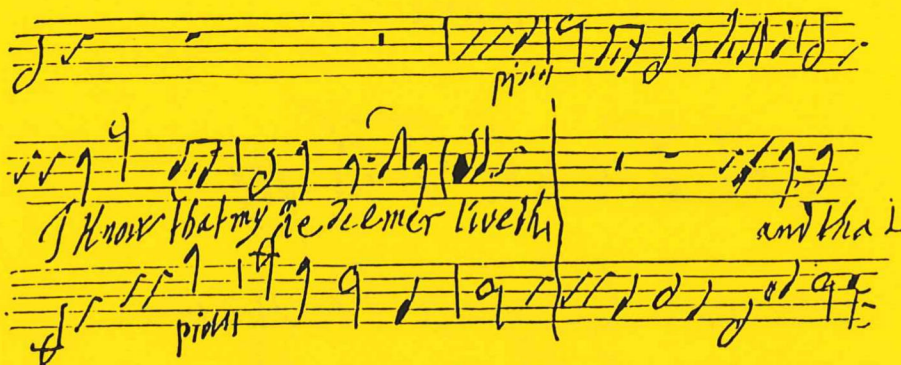 pian
I Know that my Redeemer liveth and that
pian